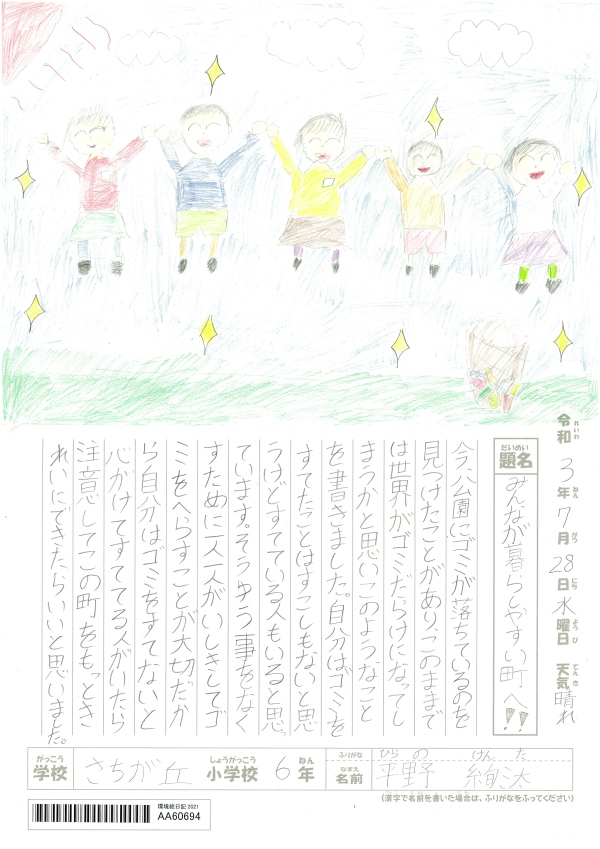 令和3年7月28日水曜日 天気晴れ
れいわ ねん がつ にち ようび てんき
だいめい
題名 みんなが暮らしやすい町へ!!
今、公園にゴミが落ちているのを
見つけたことがあり、このままで
は世界がゴミだらけになってし
まうかと思いこのようなこと
を書きました。自分はゴミを
すてたことはすこしもないと思
うけどすてている人もいると思っ
ています。そうゆう事をなく
すために一人一人がいしきしてゴ
ミをへらすことが大切だか
ら自分はゴミをすてないと
心がけてすててる人がいたら
注意してこの町をもっとき
れいにできたらいいと思いました。
がっこう しょうがっこう ねん
学校 さちが丘 小学校 6年
ふりがな ひらの けんた
なまえ
名前 平野 絢汰
(漢字で名前を書いた場合は、ふりがなをふってください)
環境絵日記 2021
AA60694